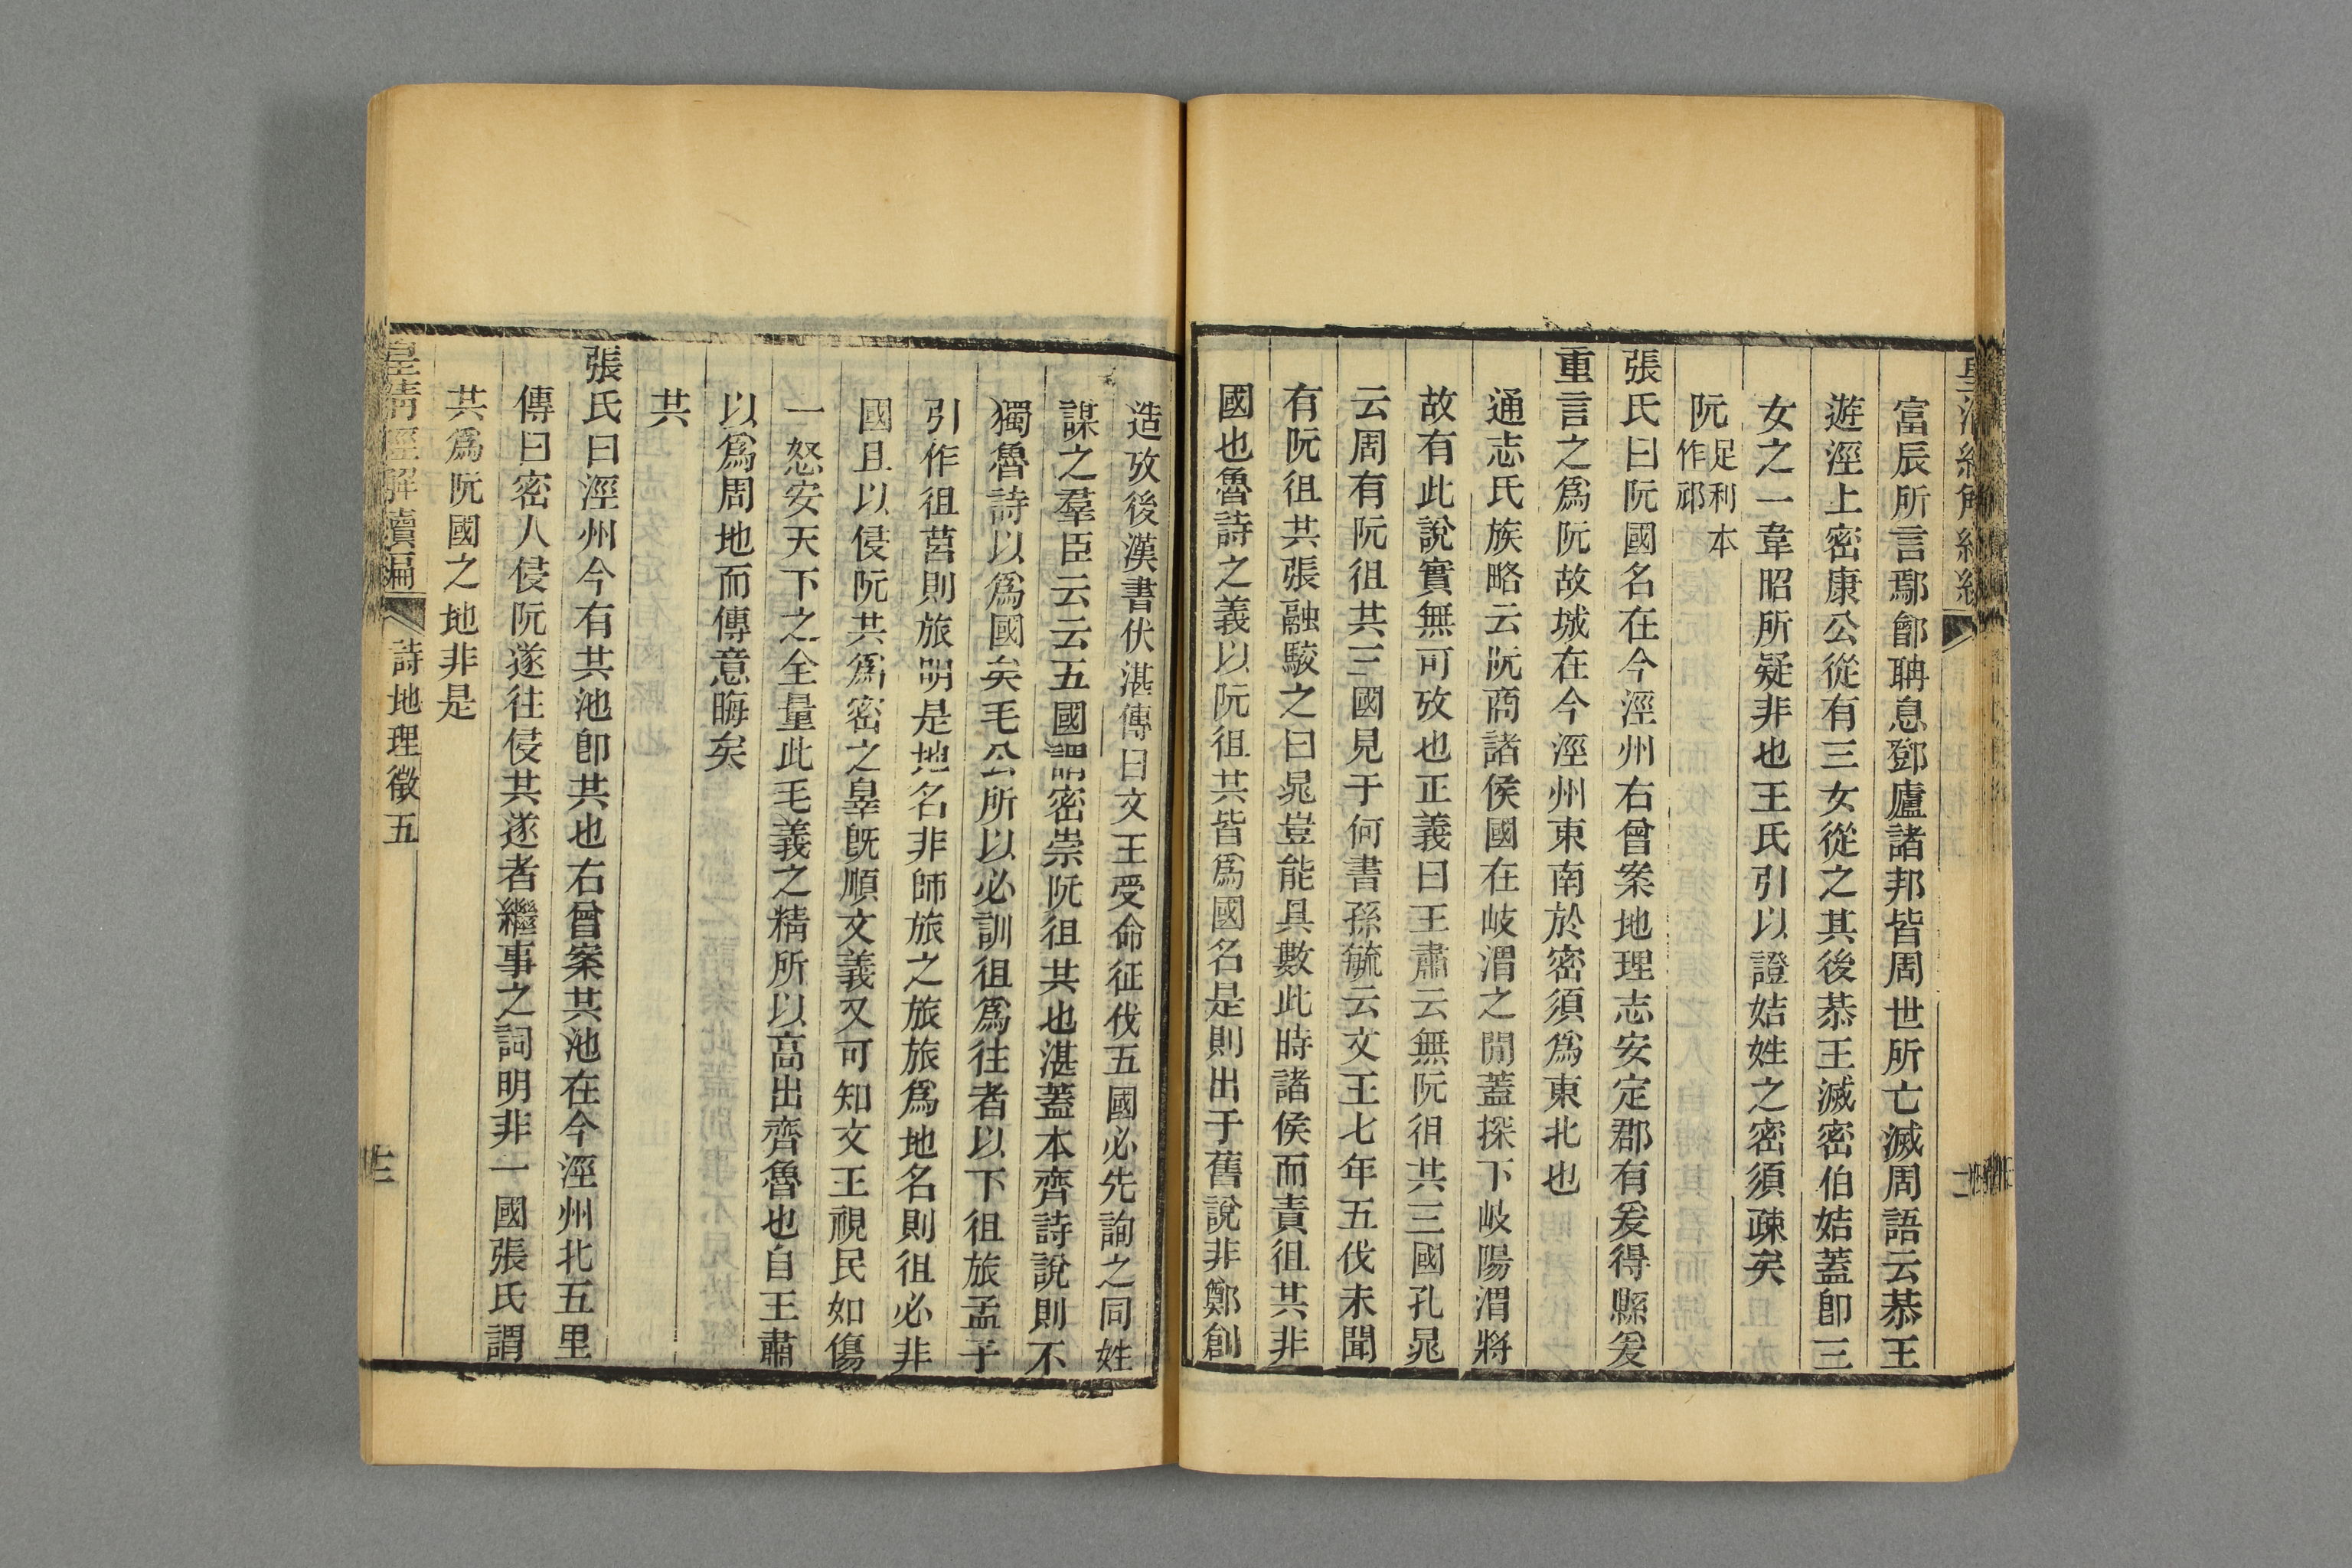 富辰所言鄢鄶聃息鄧廬諸邦皆周世所亡滅周語云恭王
遊涇上密康公從有三女從之其後恭王滅密伯姞蓋卽三
女之一韋昭所疑非也王氏引以證姞姓之密須疎矣
阮足利本作䢴
張氏曰阮國名在今涇州右曾案地理志安定郡有爰得縣爰
重言之爲阮故城在今涇州東南於密須爲東北也
通志氏族略云阮商諸侯國在岐渭之閒蓋探下岐陽渭將
故有此說實無可攷也正義曰王肅云無阮徂共三國孔晁
云周有阮徂共三國見于何書孫毓云文王七年五伐未聞
有阮徂共張融駮之曰晁豈能具數此時諸侯而責徂共非
國也魯詩之義以阮徂共皆爲國名是則出于舊說非鄭創
造攷後漢書伏湛傳曰文王受命征伐五國必先詢之同姓
謀之羣臣云云五國謂密崇阮徂共也湛蓋本齊詩說則不
獨魯詩以爲國矣毛公所以必訓徂爲往者以下徂旅孟子
引作徂莒則旅明是地名非師旅之旅旅爲地名則徂必非
國且以侵阮共爲密之辠旣順文義又可知文王視民如傷
一怒安天下之全量此毛義之精所以高出齊魯也自王肅
以爲周地而傳意晦矣
共
張氏曰涇州今有共池卽共也右曾案共池在今涇州北五里
傳曰密人侵阮遂往侵共遂者繼事之詞明非一國張氏謂
共爲阮國之地非是
皇淸經解續編
詩地理徵五